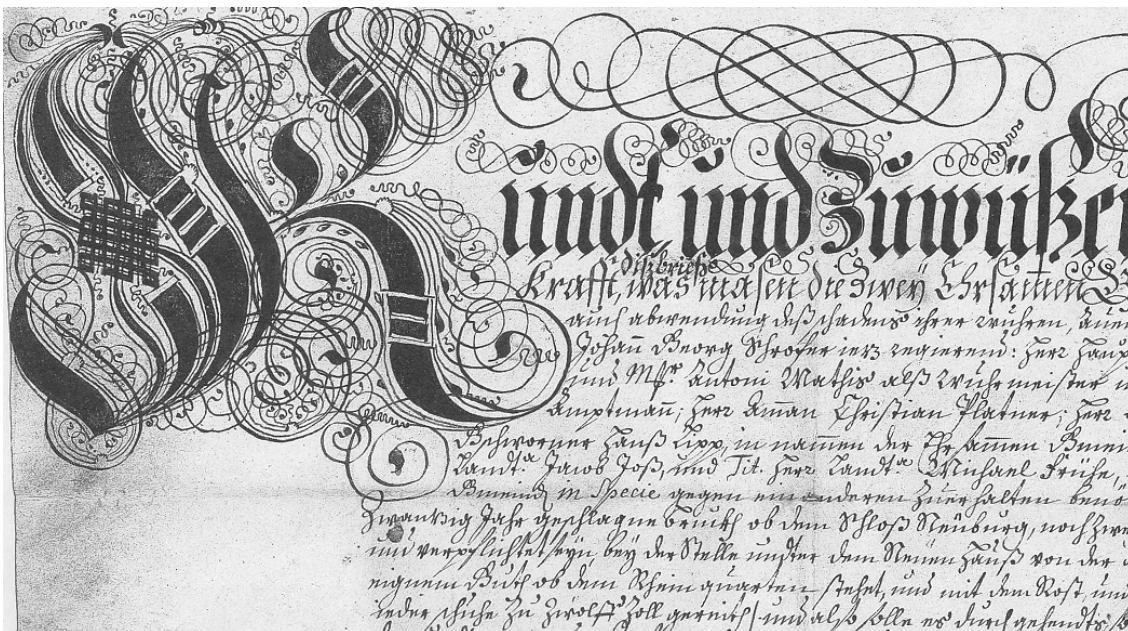 Kundt und Zuwüßen
dißbrieffs
Krafft, was masen die Zwey Ehrsamen
auch abwendung deß schadens ihrer wuhren,
Johan Georg Schrofer regierend: Herr
und Mstr. Antoni Mathis alß wuhrmeister
Amptman; Herr Aman Christian Platner; Herr
Gschworner Hanß Lipp, in namen der Ehrsamen Gmein
Landt.a Jacob Joß, und Tit. Herr Landt.a Michael Frühe,
Gmeind in Specie gegen ein anderen Zuerhalten
Zwantzig Jahr geschlagne brukh ob dem Schloß Neüburg, noch
und verpflichtet seyn, bey der Stelle undter dem Neüen Hauß von der
eignem Guth ob dem Rhein quarten stehet, und mit dem Rost, und
jeder schuhe zu Zwölff Zoll gereith und alß solle es durchgehendts